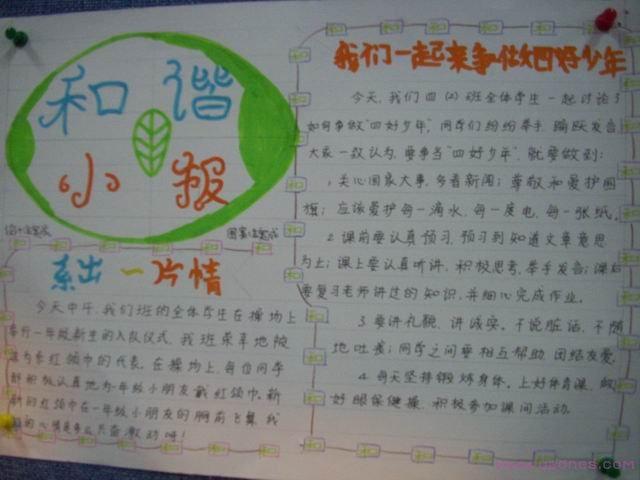 和谐
小报
系出一片情
今天中午，我们班的全体学生在操场上
举行一年级新生的入队仪式。我班荣幸地被
选为系红领巾的代表。在操场上，每位同学
都积极认真地为一年级小朋友戴红领巾。新
新的红领巾在一年级小朋友的胸前飞舞，我
的心情是多么兴奋激动呀！
我们一起来争做四好少年
今天，我们四（2）班全体学生一起讨论了
如何争做“四好少年”，同学们纷纷举手，踊跃发言，
大家一致认为，要争当“四好少年”就要做到：
1.关心国家大事，多看新闻；尊敬和爱护国
旗；应该爱护每一滴水、每一度电、每一张纸。
2.课前要认真预习，预习到知道文章意思
为止；课上要认真听讲，积极思考，举手发言；课后
要复习老师讲过的知识，并细心完成作业。
3.要讲礼貌、讲诚实。不说脏话、不随
地吐痰；同学之间要相互帮助、团结友爱。
4.每天坚持锻炼身体。上好体育课，做
好眼保健操，积极参加课间活动。